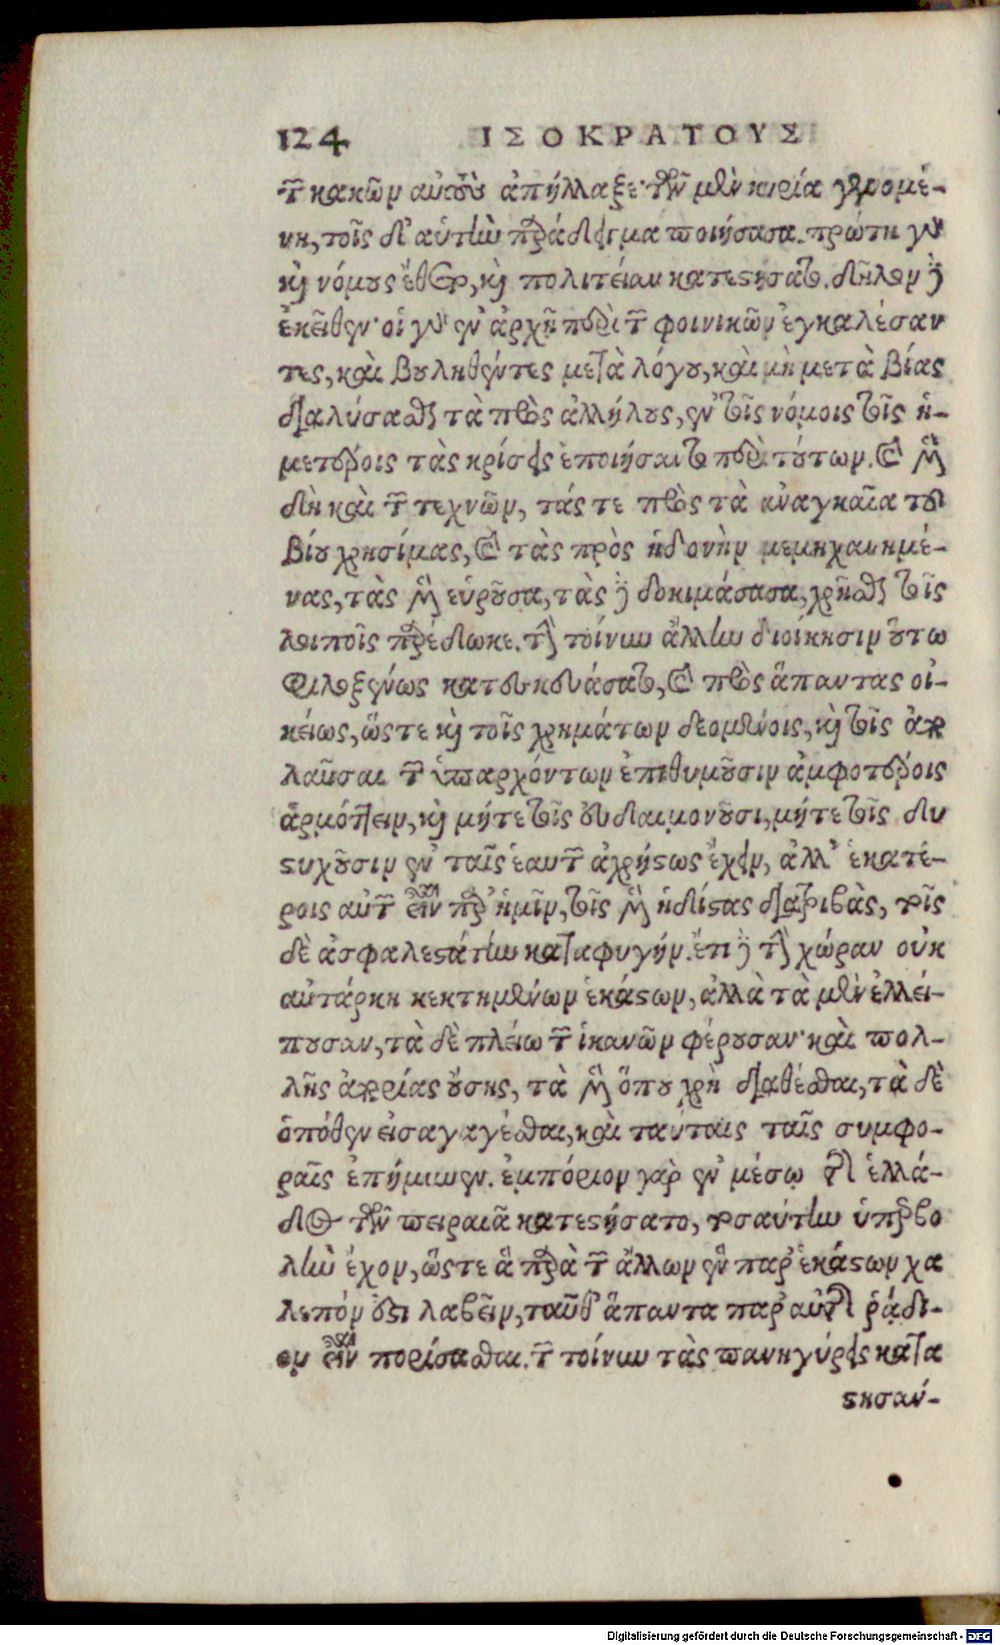 124 ΙΣΟΚΡΑΤΟΥΣ
τῶν κακῶν αὐτοὺς ἀπήλλαξε· τῶν μὲν κυρία γενομέ-
νη, τοῖς δ' αὑτὴν παράδειγμα ποιήσασα. πρώτη γὰρ
καὶ νόμους ἔθετο, καὶ πολιτείαν κατεστήσατο. δῆλον δὲ
ἐκεῖθεν· οἱ γὰρ ἐν ἀρχῇ περὶ τῶν φοινικῶν ἐγκαλέσαν
τες, καὶ βουληθέντες μετὰ λόγου, καὶ μὴ μετὰ βίας
διαλύσασθαι τὰ πρὸς ἀλλήλους, ἐν τοῖς νόμοις τοῖς ἡ-
μετέροις τὰς κρίσεις ἐποιήσαντο περὶ τούτων. καὶ μὲν
δὴ καὶ τῶν τεχνῶν, τάς τε πρὸς τὰ ἀναγκαῖα τοῦ
βίου χρησίμας, καὶ τὰς πρὸς ἡδονὴν μεμηχανημέ-
νας, τὰς μὲν εὑροῦσα, τὰς δὲ δοκιμάσασα, χρῆσθαι τοῖς
λοιποῖς παρέδωκε. τὴν τοίνυν ἄλλην διοίκησιν οὕτω
φιλοξένως κατεσκευάσατο, καὶ πρὸς ἅπαντας οἰ-
κείως, ὥστε καὶ τοῖς χρημάτων δεομένοις, καὶ τοῖς ἀπο
λαῦσαι τῶν ὑπαρχόντων ἐπιθυμοῦσιν ἀμφοτέροις
ἁρμόττειν, καὶ μήτε τοῖς εὐδαιμονοῦσι, μήτε τοῖς δυ
στυχοῦσιν ἐν ταῖς ἑαυτῶν ἀχρήστως ἔχειν, ἀλλ' ἑκατέ-
ροις αὐτῶν εἶναι παρ' ἡμῖν, τοῖς μὲν ἡδίστας διατριβὰς, τοῖς
δὲ ἀσφαλεστάτην καταφυγήν. ἔτι δὲ τὴν χώραν οὐκ
αὐτάρκη κεκτημένων ἑκάστων, ἀλλὰ τὰ μὲν ἐλλεί-
πουσαν, τὰ δὲ πλείω τῶν ἱκανῶν φέρουσαν· καὶ πολ-
λῆς ἀπορίας οὔσης, τὰ μὲν ὅπου χρὴ διαθέσθαι, τὰ δὲ
ὁπόθεν εἰσαγαγέσθαι, καὶ ταύταις ταῖς συμφο-
ραῖς ἐπήμυνεν. ἐμπόριον γὰρ ἐν μέσῳ τῆς ἑλλά-
δος τὸν πειραιᾶ κατεστήσατο, τοσαύτην ὑπερβο
λὴν ἔχον, ὥστε ἃ παρὰ τῶν ἄλλων ἓν παρ' ἑκάστων χα
λεπόν ἐστι λαβεῖν, ταῦθ' ἅπαντα παρ' αὐτῆς ῥᾴδι-
ον εἶναι πορίσασθαι. τῶν τοίνυν τὰς πανηγύρεις κατα
στησάν-
Digitalisierung gefördert durch die Deutsche Forschungsgemeinschaft - DFG